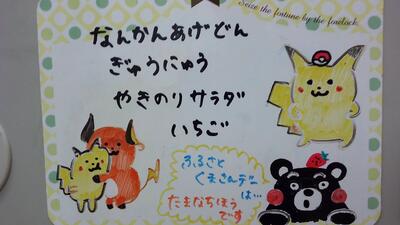 Seize the fortune by the forelock.
なんかんあげどん
ぎゅうにゅう
やきのりサラダ
いちご
ふるさと
くまさんデー
は…
たまなちほう
です